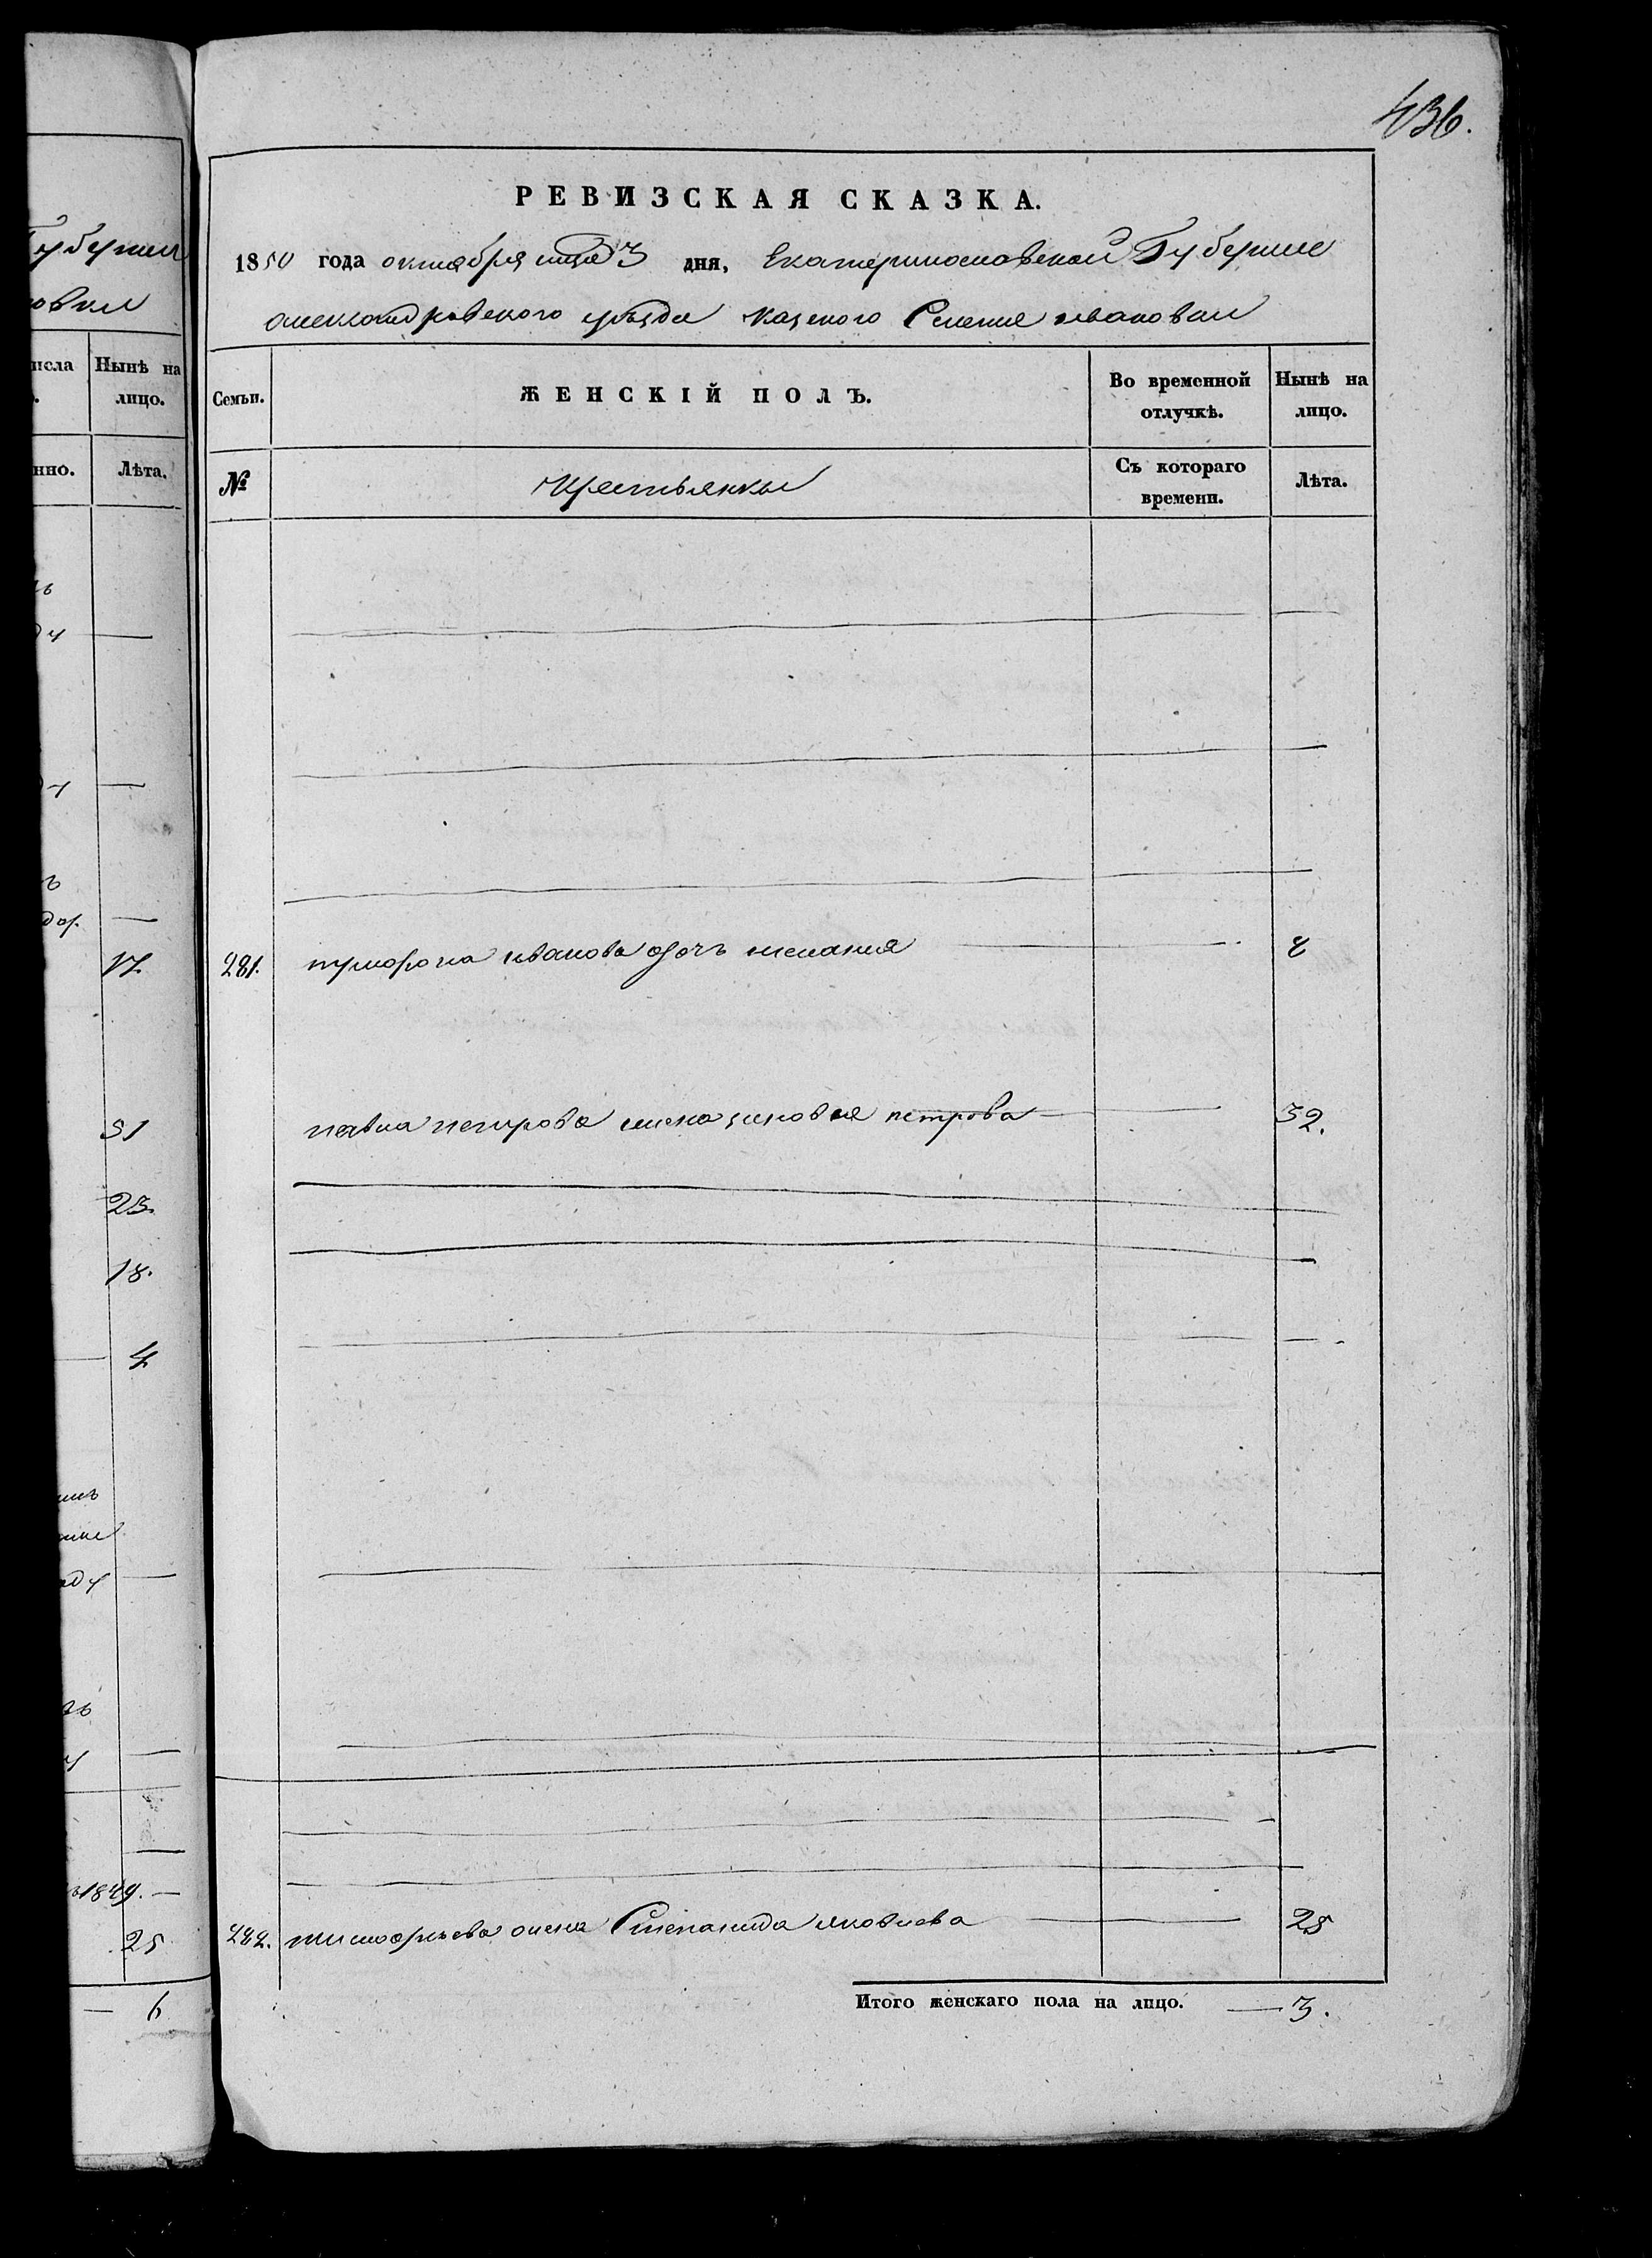 436.
РЕВИЗСКАЯ СКАЗКА.
1850 года октября 3 дня, Екатеринославской Губернии
Александровского уезда казеного Селения Ивановки
Семьи.
ЖЕНСКІЙ ПОЛЪ.
Во временной отлучкѣ.
Нынѣ на лицо.
№
Крестьянки
Съ котораго времени.
Лѣта.
281. Иванова дочъ мелания 8
павла петрова жена зиновия петрова 32.
282. жена Степанида яковлева 25
Итого женскаго пола на лицо. — 3.
Губернии
овки
Нынѣ на
лицо.
нно.
Лѣта.
17
51
23.
18.
4
1849. —
25
— 6